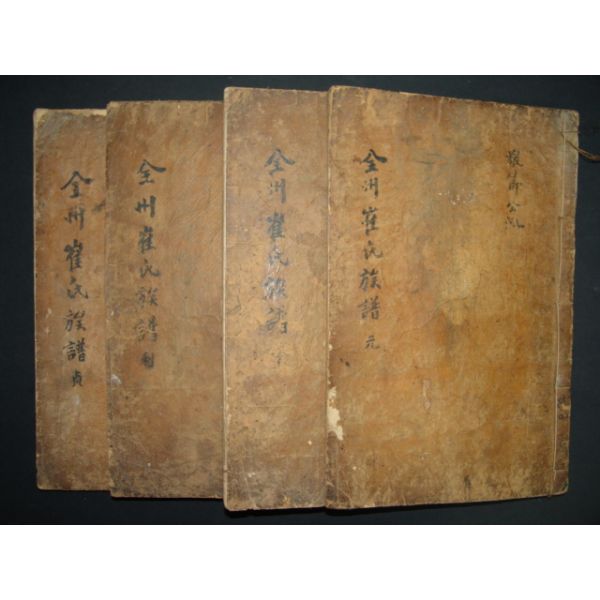 公派
全州崔氏族譜 元
全州崔氏族譜
全州崔氏族譜 利
全州崔氏族譜 貞